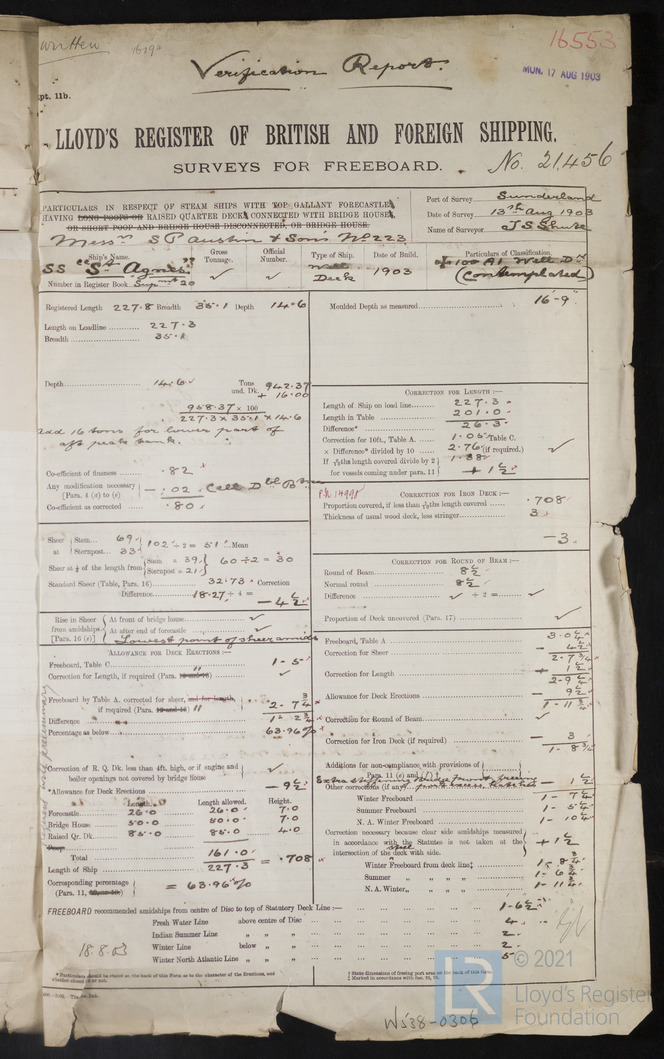 written
16553
Verification Report.
MON. 17 AUG 1903
pt. 11b.
LLOYD'S REGISTER OF BRITISH AND FOREIGN SHIPPING.
SURVEYS FOR FREEBOARD.
No. 21,456
PARTICULARS IN RESPECT OF STEAM SHIPS WITH TOP GALLANT FORECASTLES,
HAVING LONG POOPS OR RAISED QUARTER DECKS CONNECTED WITH BRIDGE HOUSES,
OR SHORT POOP AND BRIDGE HOUSE DISCONNECTED, OR BRIDGE HOUSE.
Port of Survey Sunderland
Date of Survey 13th Aug 1903
Name of Surveyor
Messrs S P Austin & Sons No 223
Ship's Name. Gross Tonnage. Official Number. Type of Ship. Date of Build. Particulars of Classification.
SS "St Agnes" Well Deck 1903 +100 A1 Well Dk (Contemplated)
Number in Register Book 20
Registered Length 227.8 Breadth 35.1 Depth 14.6
Moulded Depth as measured 16-9
Length on Loadline 227.3
Breadth 35.1
Depth 14.6 Tons und. Dk. 942.37
+ 16.00
958.37 x 100
227.3 x 35.1 x 14.6
add 16 tons for lower part of
aft peak tank.
Co-efficient of fineness .82
Any modification necessary [Para. 4 (a) to (e)] - .02
Co-efficient as corrected .80
CORRECTION FOR LENGTH:—
Length of Ship on load line 227.3
Length in Table 201.0
Difference 26.3
Correction for 10ft., Table A. 1.05 Table C.
× Difference divided by 10 2.76 (if required.)
If 6/10ths length covered divide by 2 1.38
for vessels coming under para. 11 + 1½
CORRECTION FOR IRON DECK:—
Proportion covered, if less than 7/10ths length covered .708
Thickness of usual wood deck, less stringer 3
-3
Sheer at Stem 69 102 ÷ 2 = 51 Mean
Sternpost 33
Sheer at ⅛ of the length from Stem = 39 60 ÷ 2 = 30
Sternpost = 21
Standard Sheer (Table, Para. 16) 32.73 Correction
Difference 18.27 ÷ 4 = - 4½
CORRECTION FOR ROUND OF BEAM:—
Round of Beam 8½
Normal round 8½
Difference ÷ 2 =
Proportion of Deck uncovered (Para. 17)
Rise in Sheer from amidships [Para. 16 (e)]
At front of bridge house
At after end of forecastle
Lowest point of sheer amids
ALLOWANCE FOR DECK ERECTIONS:—
Freeboard, Table C 1-5
Correction for Length, if required (Para. 11)
Freeboard by Table A. corrected for sheer, and for length, if required (Para. 11) 2-7¾
Difference 1-2¾
Percentage as below 63.96%
Correction of R. Q. Dk. less than 4ft. high, or if engine and
boiler openings not covered by bridge house
*Allowance for Deck Erections - 9½
Length. Length allowed. Height.
Forecastle 26.0 26.0 7.0
Bridge House 50.0 50.0 7.0
Raised Qr. Dk. 85.0 85.0 4.0
Poop
Total 161.0
Length of Ship 227.3 = .708
Corresponding percentage (Para. 11,) = 63.96%
Freeboard, Table A 3.0¼
Correction for Sheer - 4½
2-7¾
Correction for Length + 1½
2-9¼
Allowance for Deck Erections - 9½
1-11¾
Correction for Round of Beam
Correction for Iron Deck (if required) - 3
1-8¾
Additions for non-compliance with provisions of
Para. 11 (e) and (f)
Other corrections (if any) - 1½
Winter Freeboard 1-7¼
Summer Freeboard 1-5¼
N. A. Winter Freeboard 1-10¼
Correction necessary because clear side amidships measured
in accordance with the Statutes is not taken at the
intersection of the deck with side. +1½
Winter Freeboard from deck line‡ 1-8¾
Summer „ „ „ 1-6¾
N. A. Winter„ „ „ 1-11¾
FREEBOARD recommended amidships from centre of Disc to top of Statutory Deck Line:— 1-6½
Fresh Water Line above centre of Disc 4
Indian Summer Line „ „ 2
Winter Line below „ „ 2
Winter North Atlantic Line „ „ 5
18.8.03
© 2021
LR
Lloyd's Register
Foundation
WS38-0306